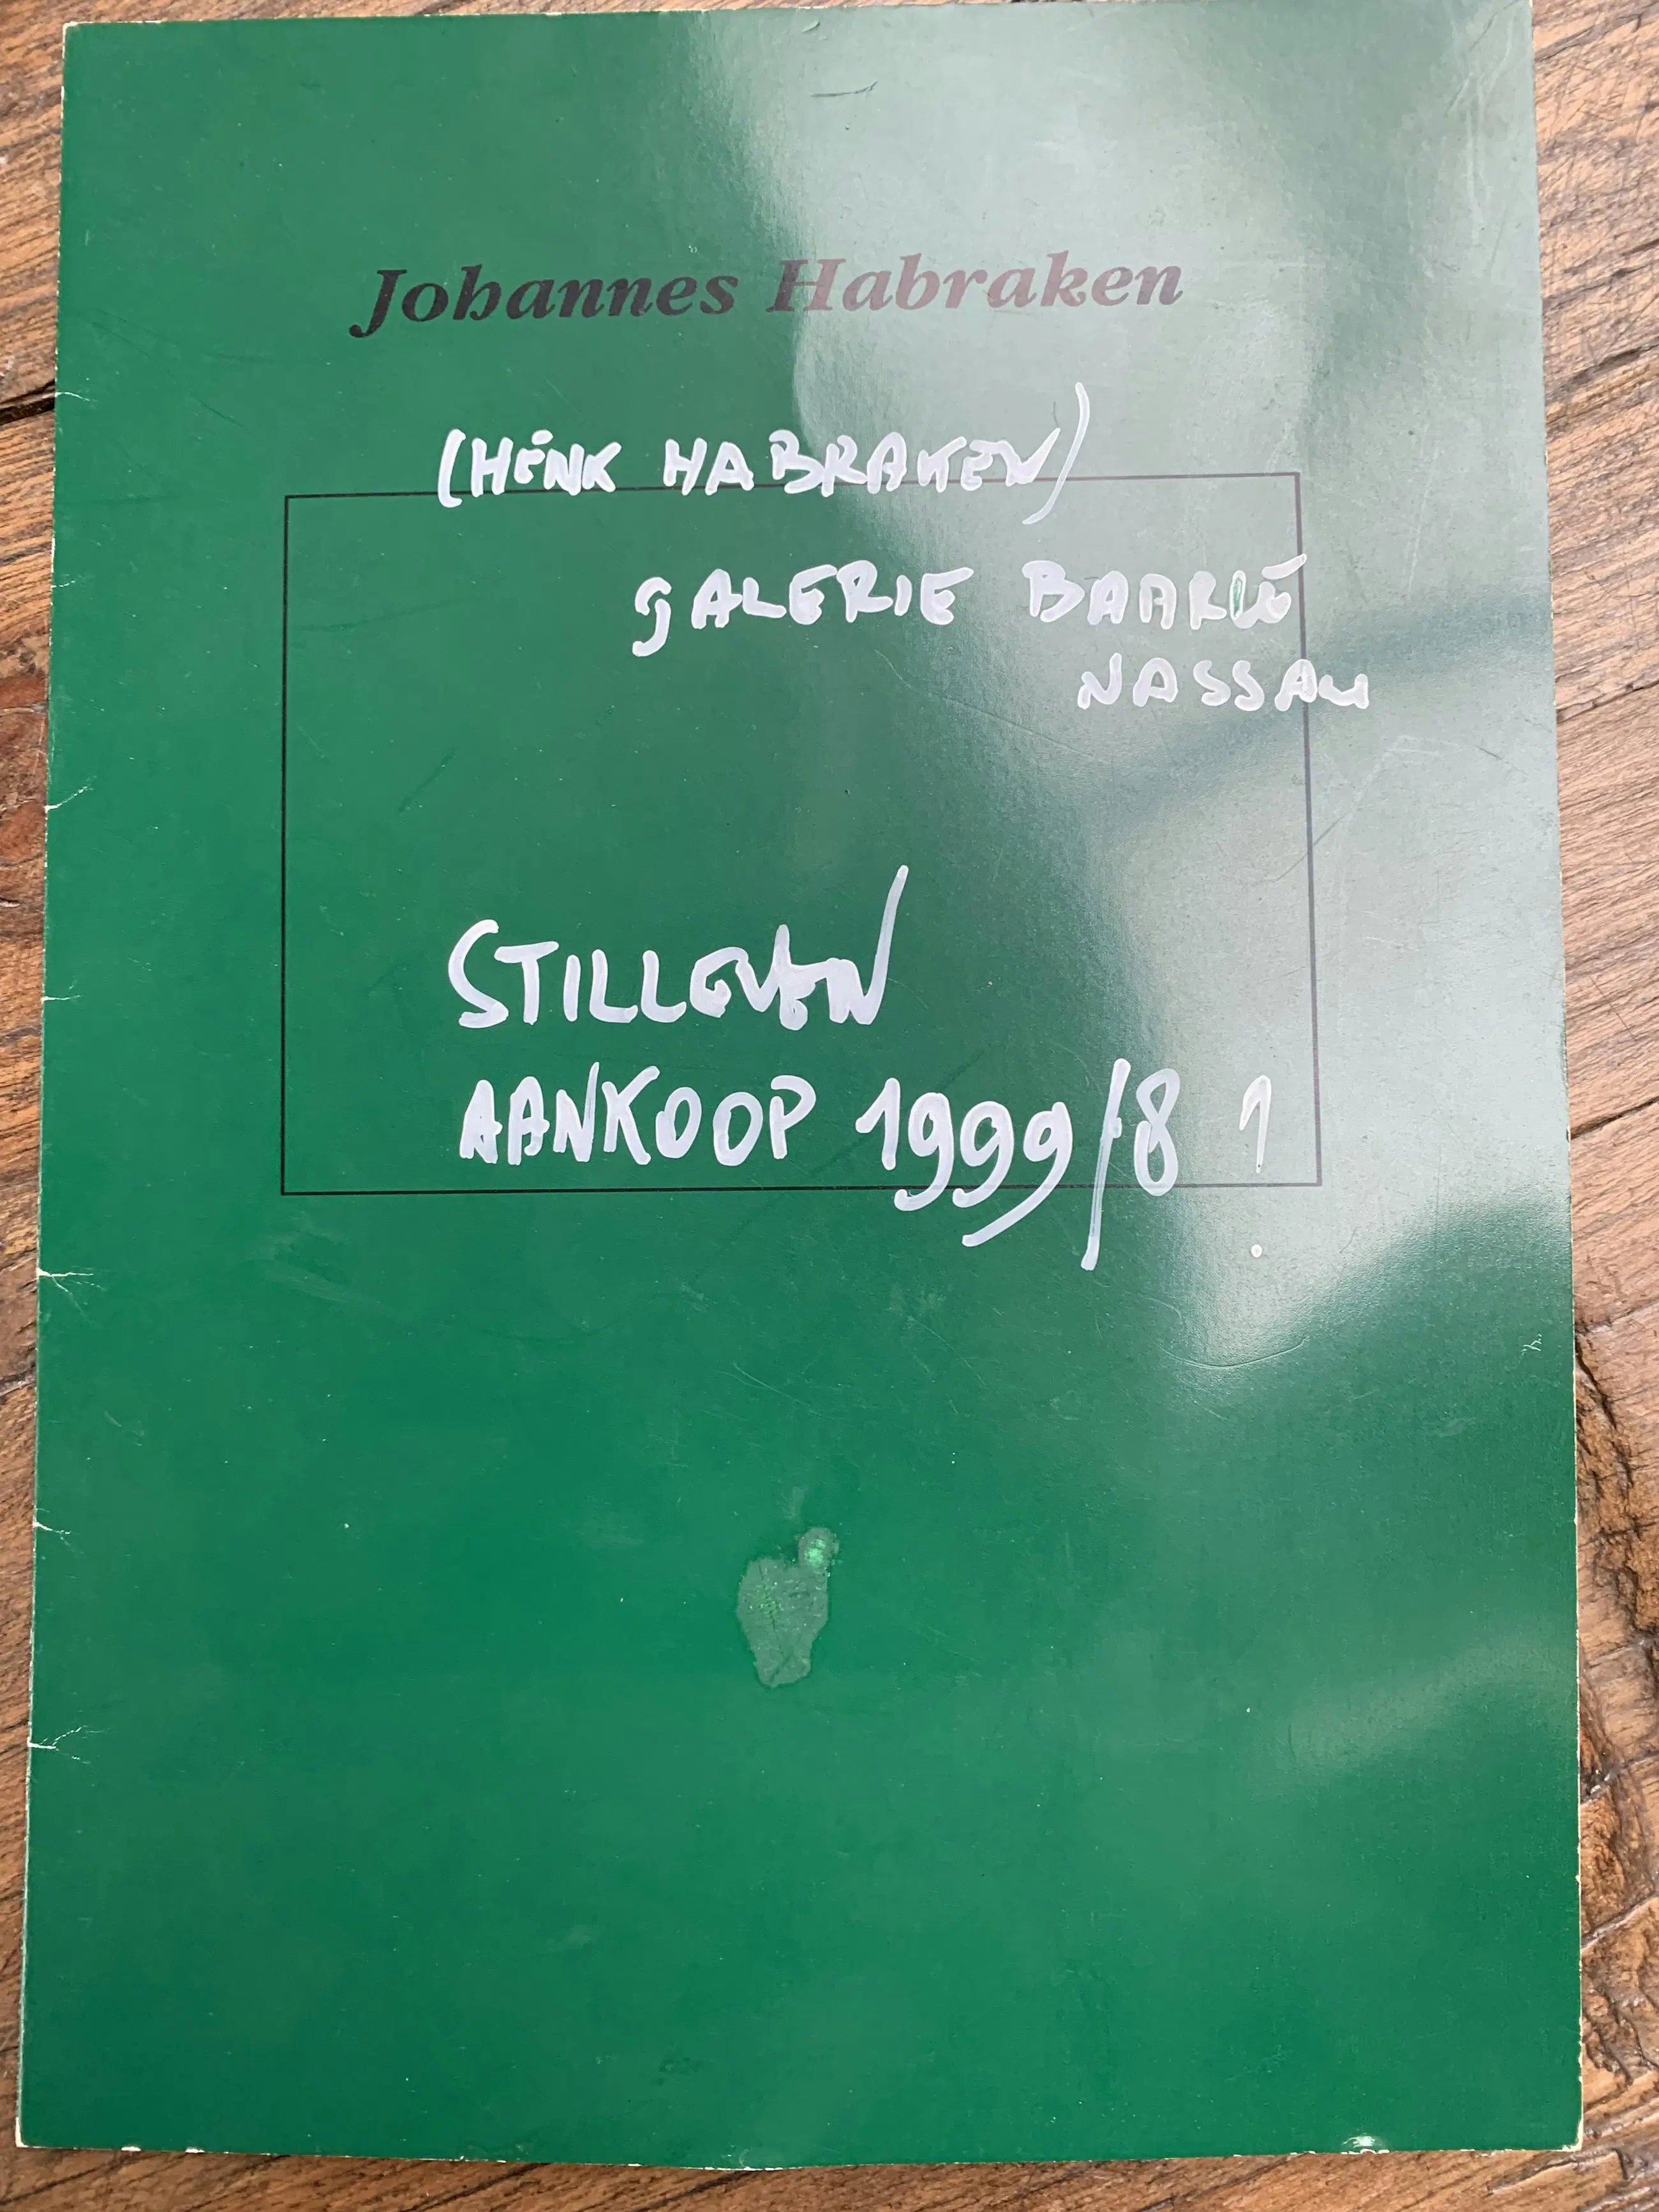 Johannes Habraken
(HENK HABRAKEN)
gALERIE BAARLE
NASSAU
STILLEVEN
AANKOOP 1999/8 ?